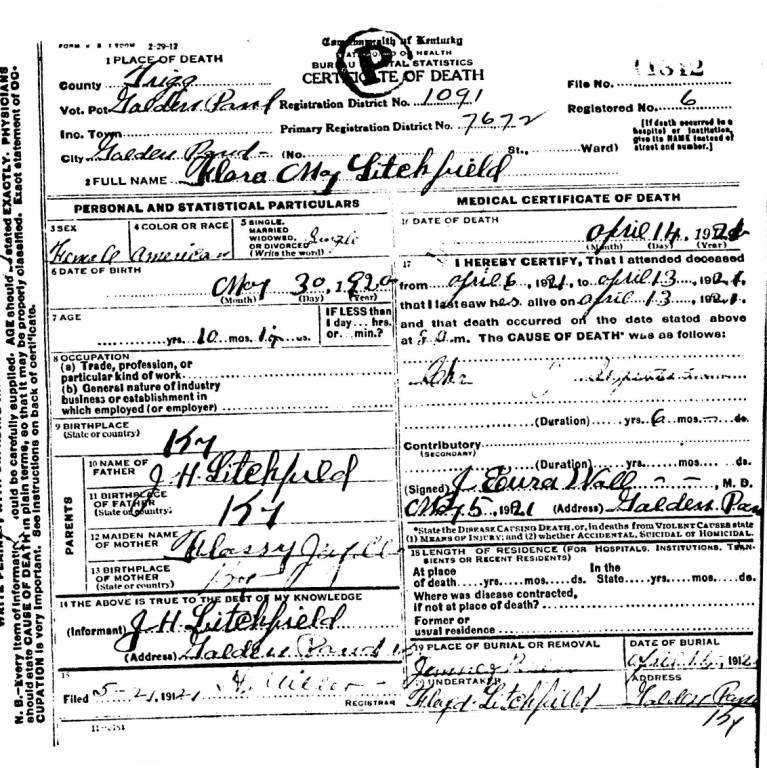 FORM V. S. 1 2-29-12
Commonwealth of Kentucky
STATE BOARD OF HEALTH
BUREAU OF VITAL STATISTICS
CERTIFICATE OF DEATH
P
1 PLACE OF DEATH
County Trigg
Vot. Pct Golden Pond
Inc. Town
City Golden Pond (No. St., Ward)
Registration District No. 1091
Primary Registration District No. 7672
File No. 11342
Registered No. 6
[If death occurred in a hospital or institution, give its NAME instead of street and number.]
2 FULL NAME Flora May Litchfield
PERSONAL AND STATISTICAL PARTICULARS
3 SEX
Female
4 COLOR OR RACE
American
5 SINGLE, MARRIED WIDOWED, OR DIVORCED (Write the word) Single
6 DATE OF BIRTH
May 30, 1920
(Month) (Day) (Year)
7 AGE
yrs. 10 mos. ds.
IF LESS than 1 day... hrs. or... min.?
8 OCCUPATION
(a) Trade, profession, or
particular kind of work
(b) General nature of industry
business or establishment in
which employed (or employer)
9 BIRTHPLACE
(State or country)
Ky
PARENTS
10 NAME OF FATHER
J H Litchfield
11 BIRTHPLACE OF FATHER
(State or country)
Ky
12 MAIDEN NAME OF MOTHER
13 BIRTHPLACE OF MOTHER
(State or country)
Ky
14 THE ABOVE IS TRUE TO THE BEST OF MY KNOWLEDGE
(Informant) J H Litchfield
(Address) Golden Pond
15
Filed 5-21, 1921 Miller
REGISTRAR
MEDICAL CERTIFICATE OF DEATH
16 DATE OF DEATH
April 14, 1921
(Month) (Day) (Year)
17 I HEREBY CERTIFY, That I attended deceased
from April 6, 1921, to April 13, 1921,
that I last saw her alive on April 13, 1921,
and that death occurred on the date stated above
at 8 a.m. The CAUSE OF DEATH* was as follows:
(Duration) yrs. 6 mos. ds.
Contributory
(SECONDARY)
(Duration) yrs. mos. ds.
(Signed) J Wall M. D.
May 5, 1921 (Address) Golden Pond
*State the DISEASE CAUSING DEATH, or, in deaths from VIOLENT CAUSES state
(1) MEANS OF INJURY; and (2) whether ACCIDENTAL, SUICIDAL or HOMICIDAL.
18 LENGTH OF RESIDENCE (FOR HOSPITALS, INSTITUTIONS, TRANSIENTS OR RECENT RESIDENTS)
At place of death yrs. mos. ds. In the State yrs. mos. ds.
Where was disease contracted,
if not at place of death?
Former or
usual residence
19 PLACE OF BURIAL OR REMOVAL
DATE OF BURIAL
1912
20 UNDERTAKER
Floyd Litchfield
ADDRESS
Golden Pond
Ky
N. B.—Every item of information should be carefully supplied. AGE should be stated EXACTLY. PHYSICIANS
should state CAUSE OF DEATH in plain terms, so that it may be properly classified. Exact statement of OC-
CUPATION is very important. See instructions on back of certificate.